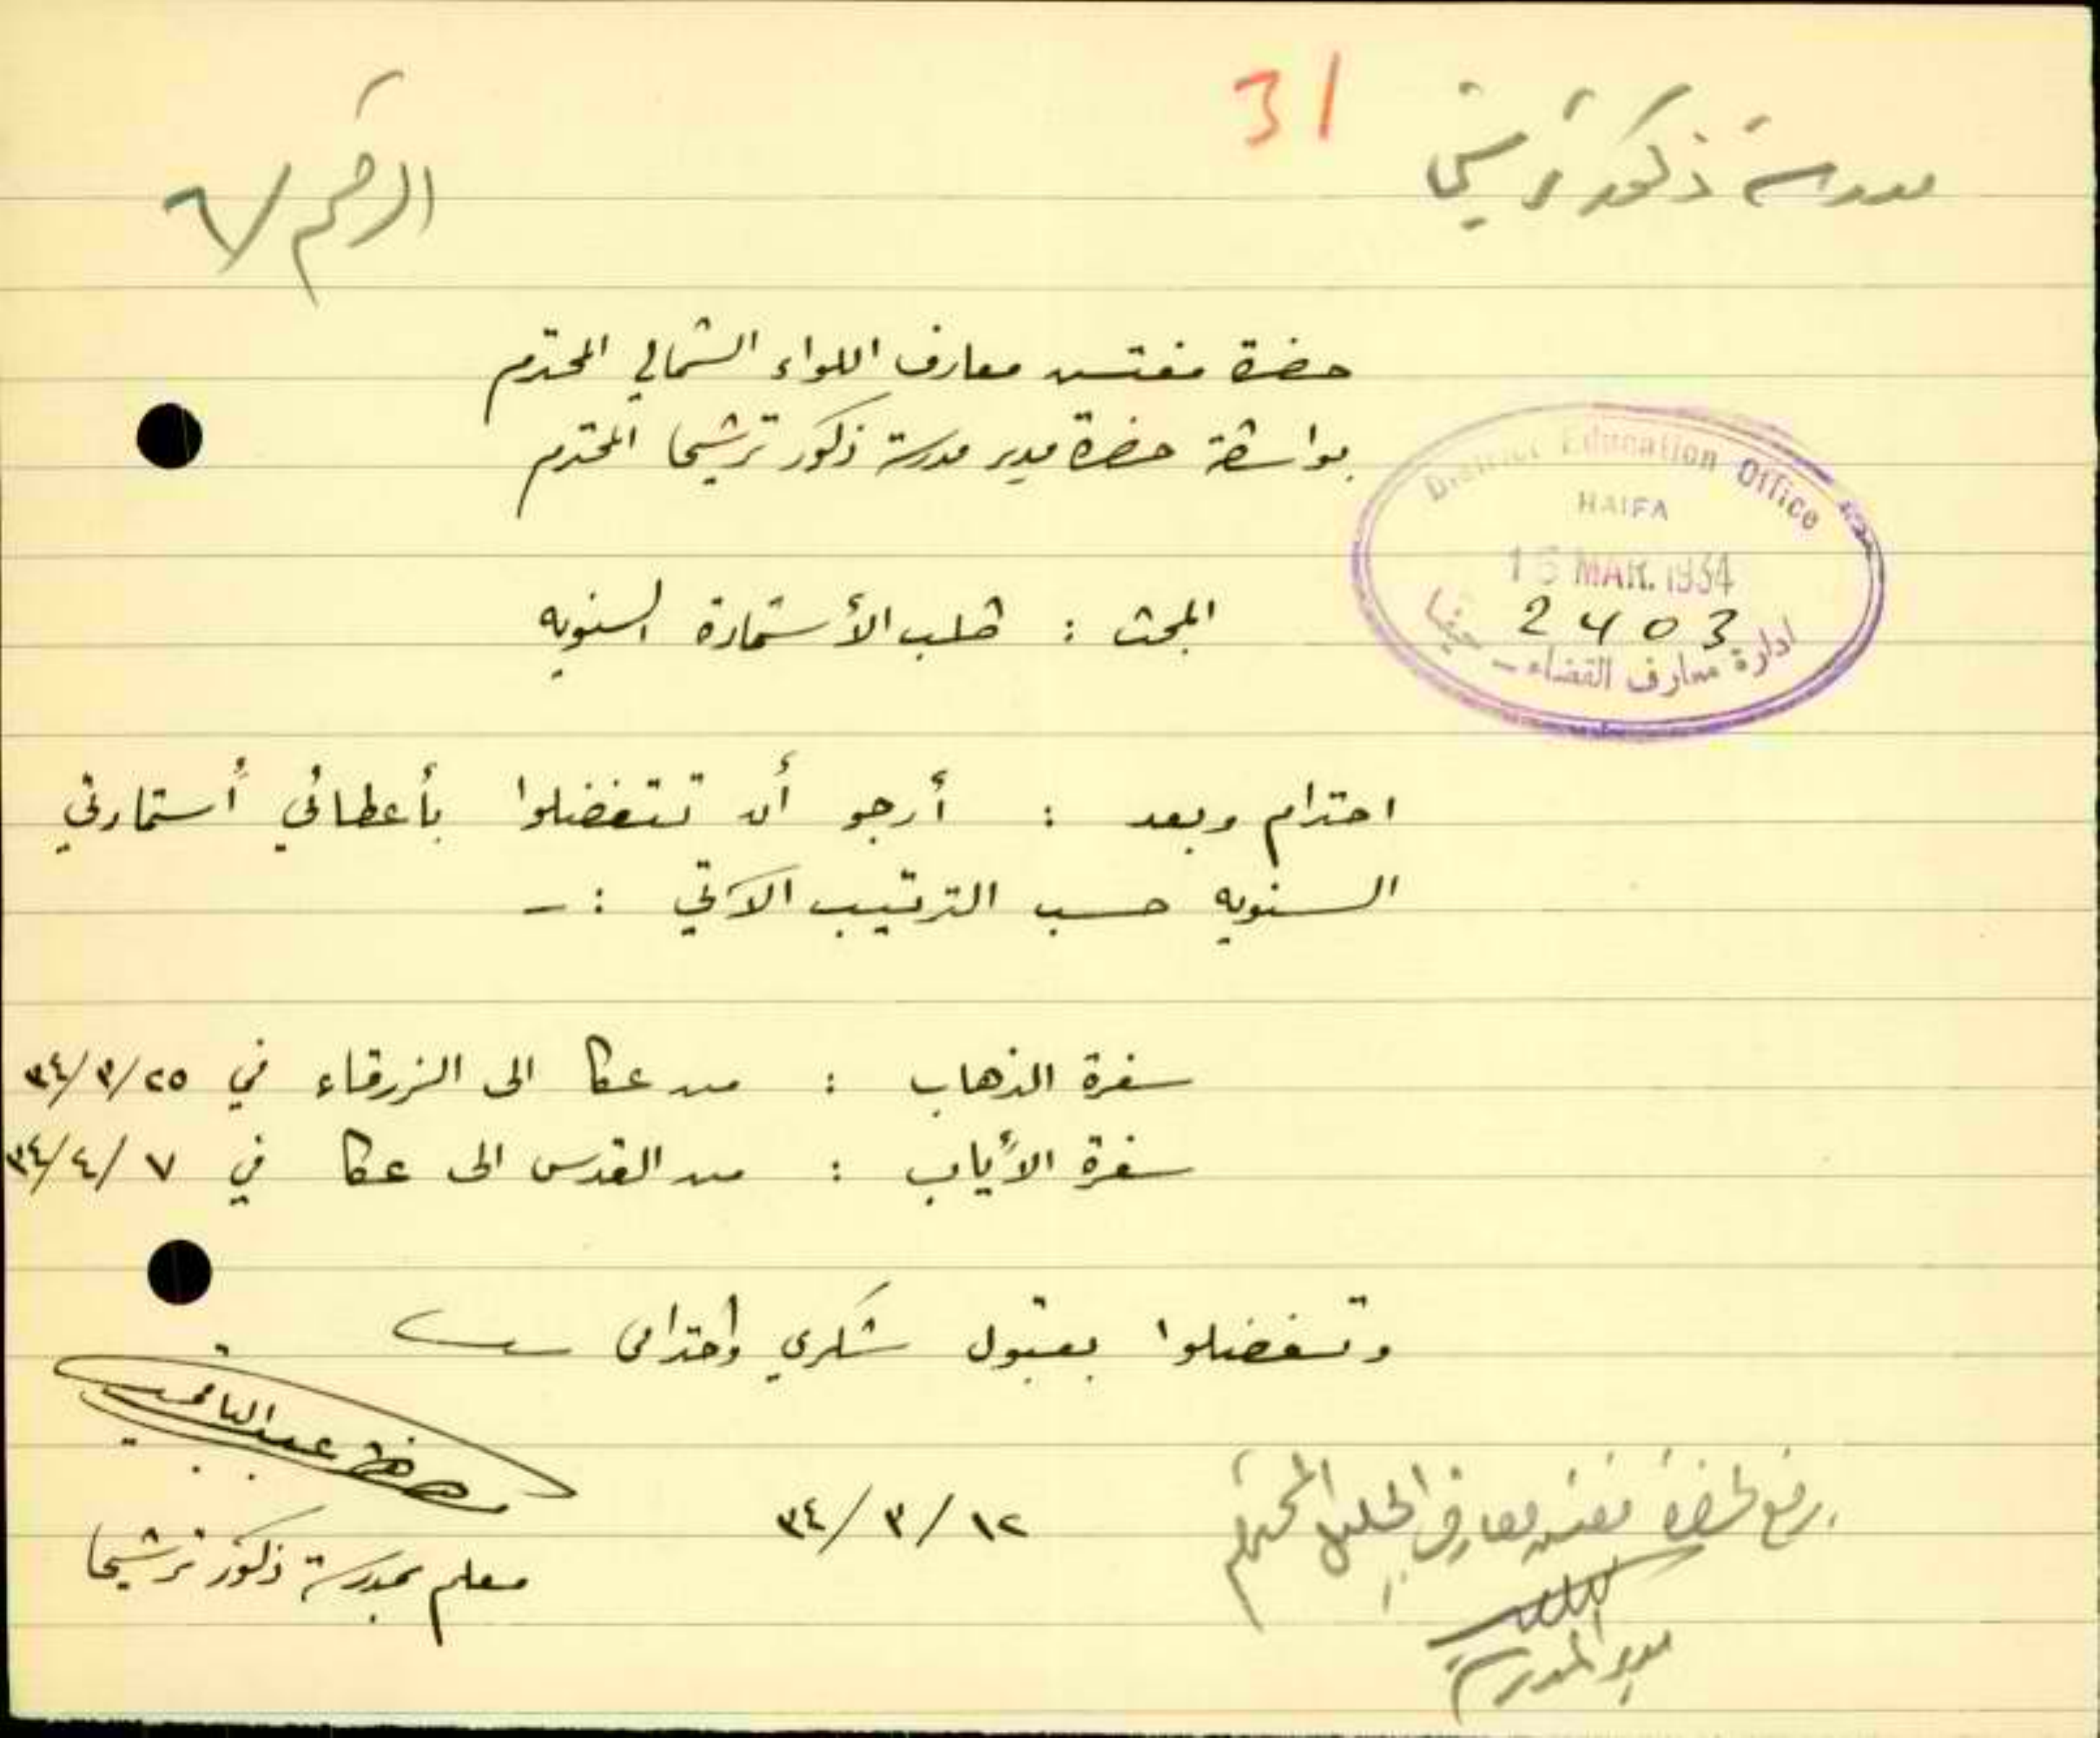 31
مدرسة ذكور ترشيحا
الرقم ٦/
حضرة مفتش معارف اللواء الشمالي المحترم
بواسطة حضرة مدير مدرسة ذكور ترشيحا المحترم
District Education Office
HAIFA
15 MAR. 1934
2403
ادارة معارف القضاء – حيفا
المبحث : طلب الأستمارة السنويه
احترام وبعد : أرجو أن تتفضلوا بأعطائي أستمارتي
السنويه حسب الترتيب الآتي :-
سفرة الذهاب : من عكا الى الزرقاء في ٢٥/٣/٣٤
سفرة الأياب : من القدس الى عكا في ٧/٤/٣٤
وتفضلوا بقبول شكري وأحترامي
حافظ عبد الباقي
معلم بمدرسة ذكور ترشيحا
١٢/٣/٣٤
يرفع لحضرة مفتش معارف الجليل المحترم
مدير المدرسة